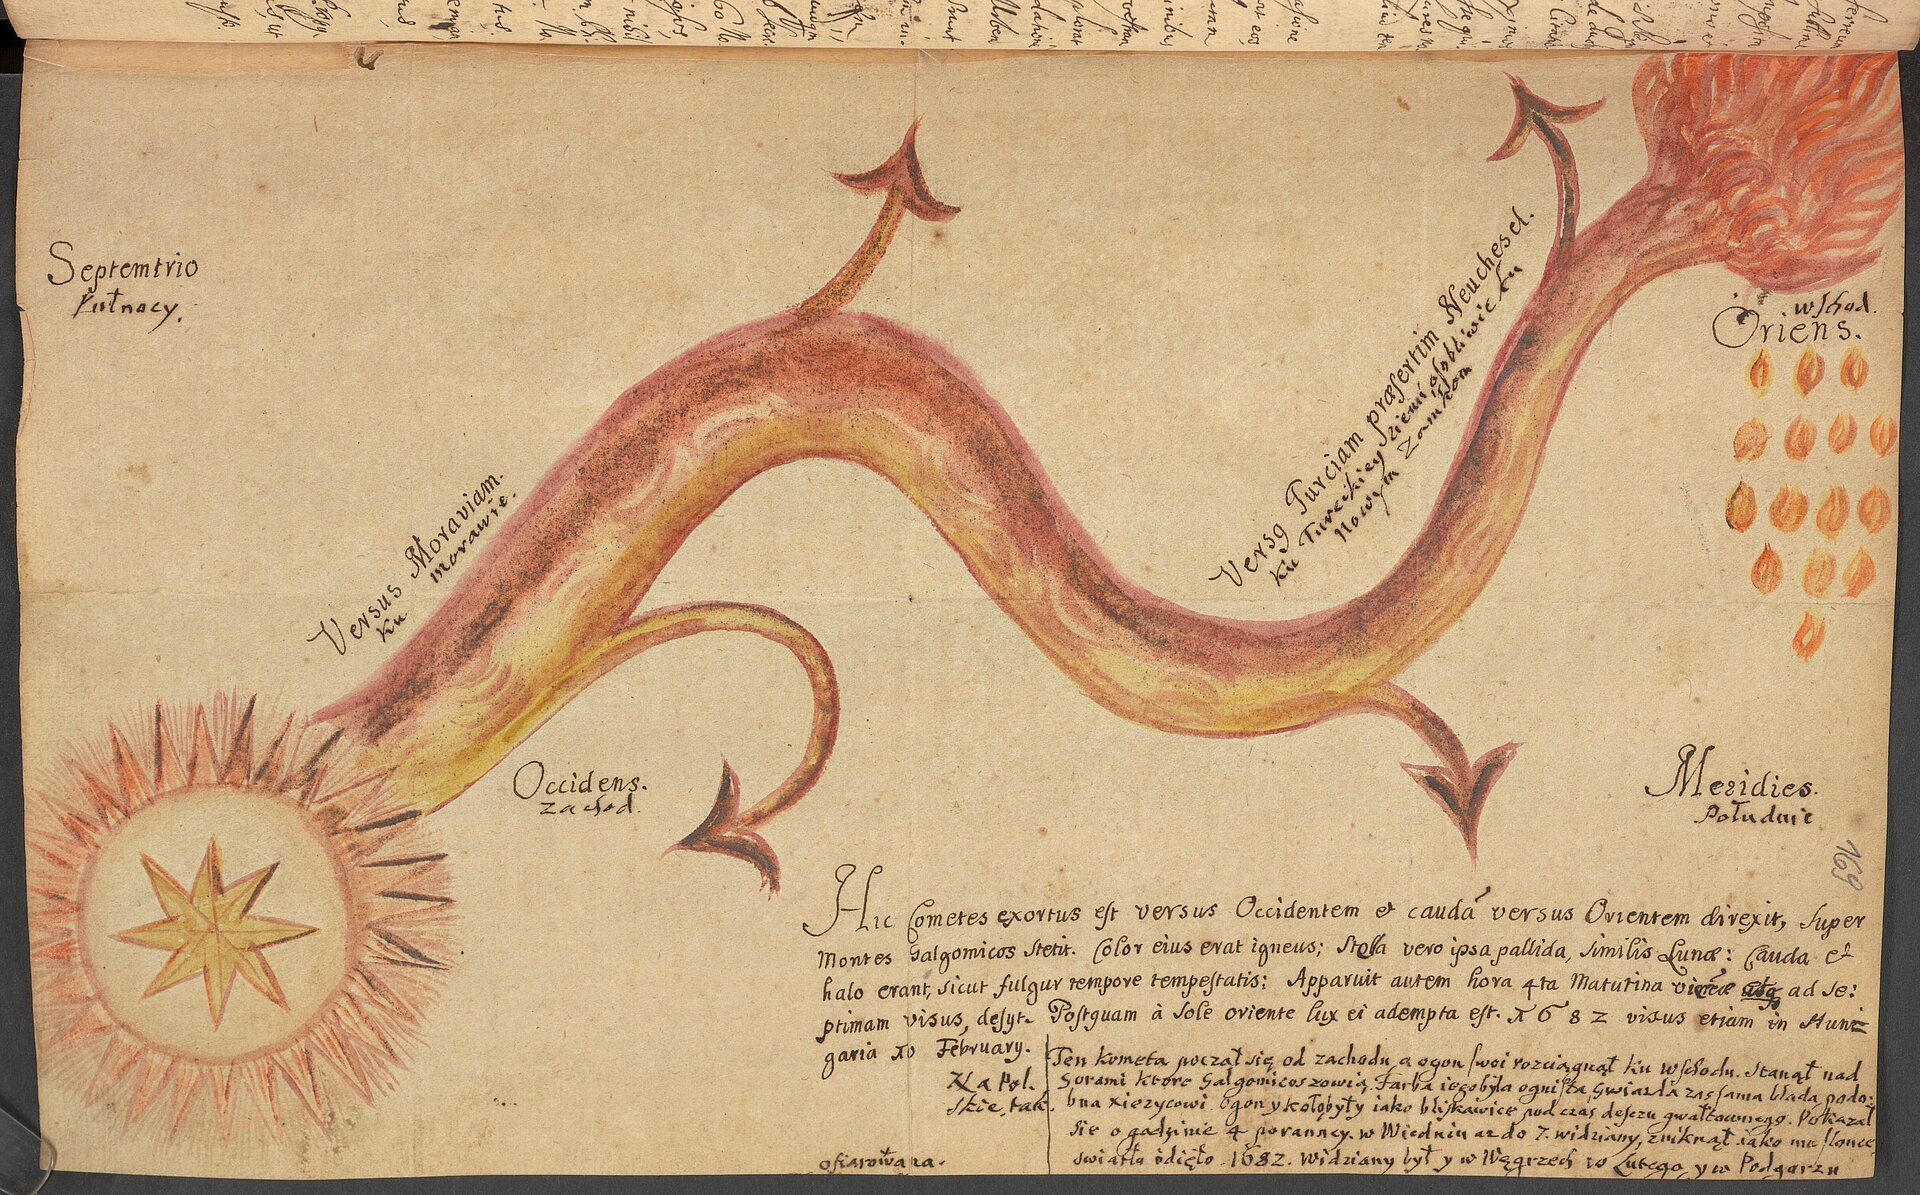 Septemtrio
Pułnocy.
Versus Moraviam.
ku morawie.
Versq Turciam præsertim Neuchesel.
ku Tureckiey ziemi osobliwie ku
Nowym Zamkom
wschod.
Oriens.
Occidens.
zachod.
Meridies.
Południe
169
Hic Cometes exortus est versus Occidentem et caudâ versus Orientem direxit, super
Montes Galgomicos stetit. Color eius erat igneus; Stella vero ipsa pallida, similis Lunæ: Cauda et
halo erant, sicut fulgur tempore tempestatis: Apparuit autem hora 4ta Matutina ad se:
ptimam visus, desyt. Postquam à Sole oriente lux ei adempta est. 1682 visus etiam in Hun:
garia 10 February.
Na Pol.
skie, tak.
Ten kometa począł się od zachodu, a ogon swoi rozciągnął ku wschodu. Stanął nad
Gorami ktore Galgomicos zowią. Farba iego była ognista, Gwiazda zas sama blada podo:
bna xiezycowi. Ogon y koło były iako błyskawice pod czas deszczu gwałtownego. Pokazał
sie o godzinie 4 poranney. w Wiedniu az do 7. widziany, zniknął iako mu słonce
swiatło odięło. 1682. Widziany był y w Węgrzech 10 Lutego, y w Podgorzu
ofiarowana.